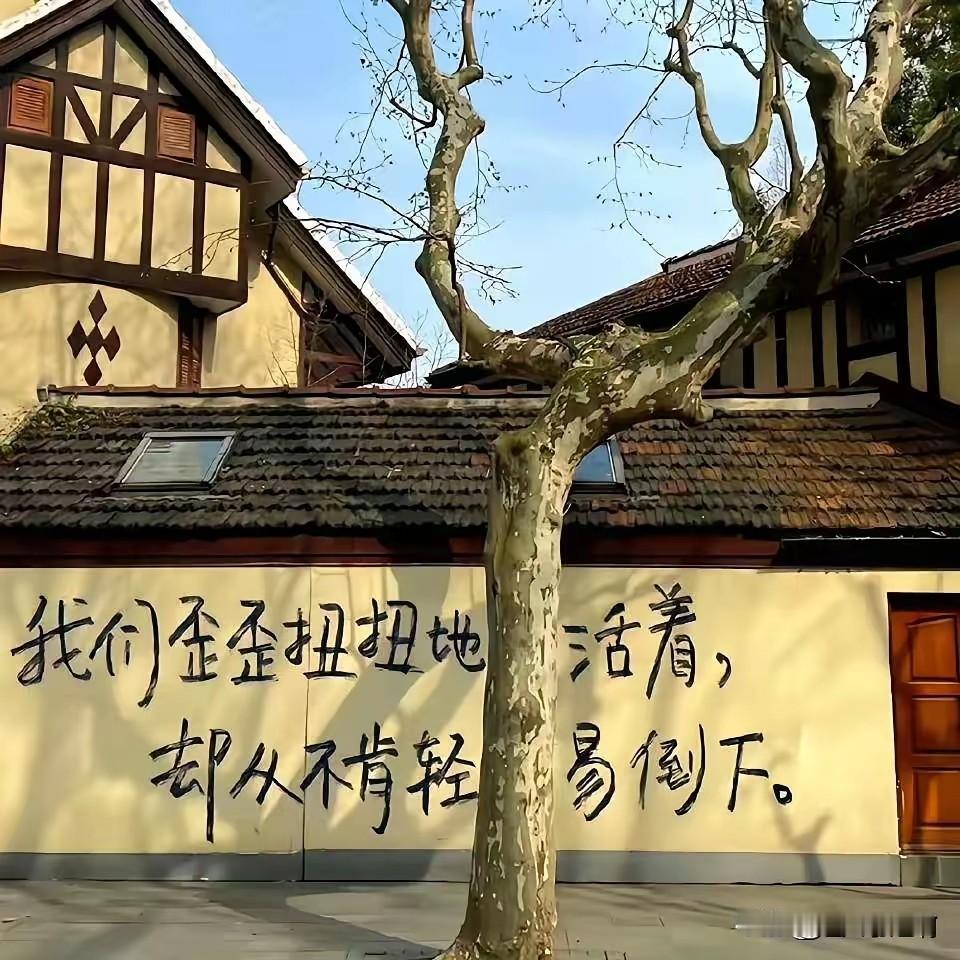 我们歪歪扭扭地活着，
却从不肯轻易倒下。